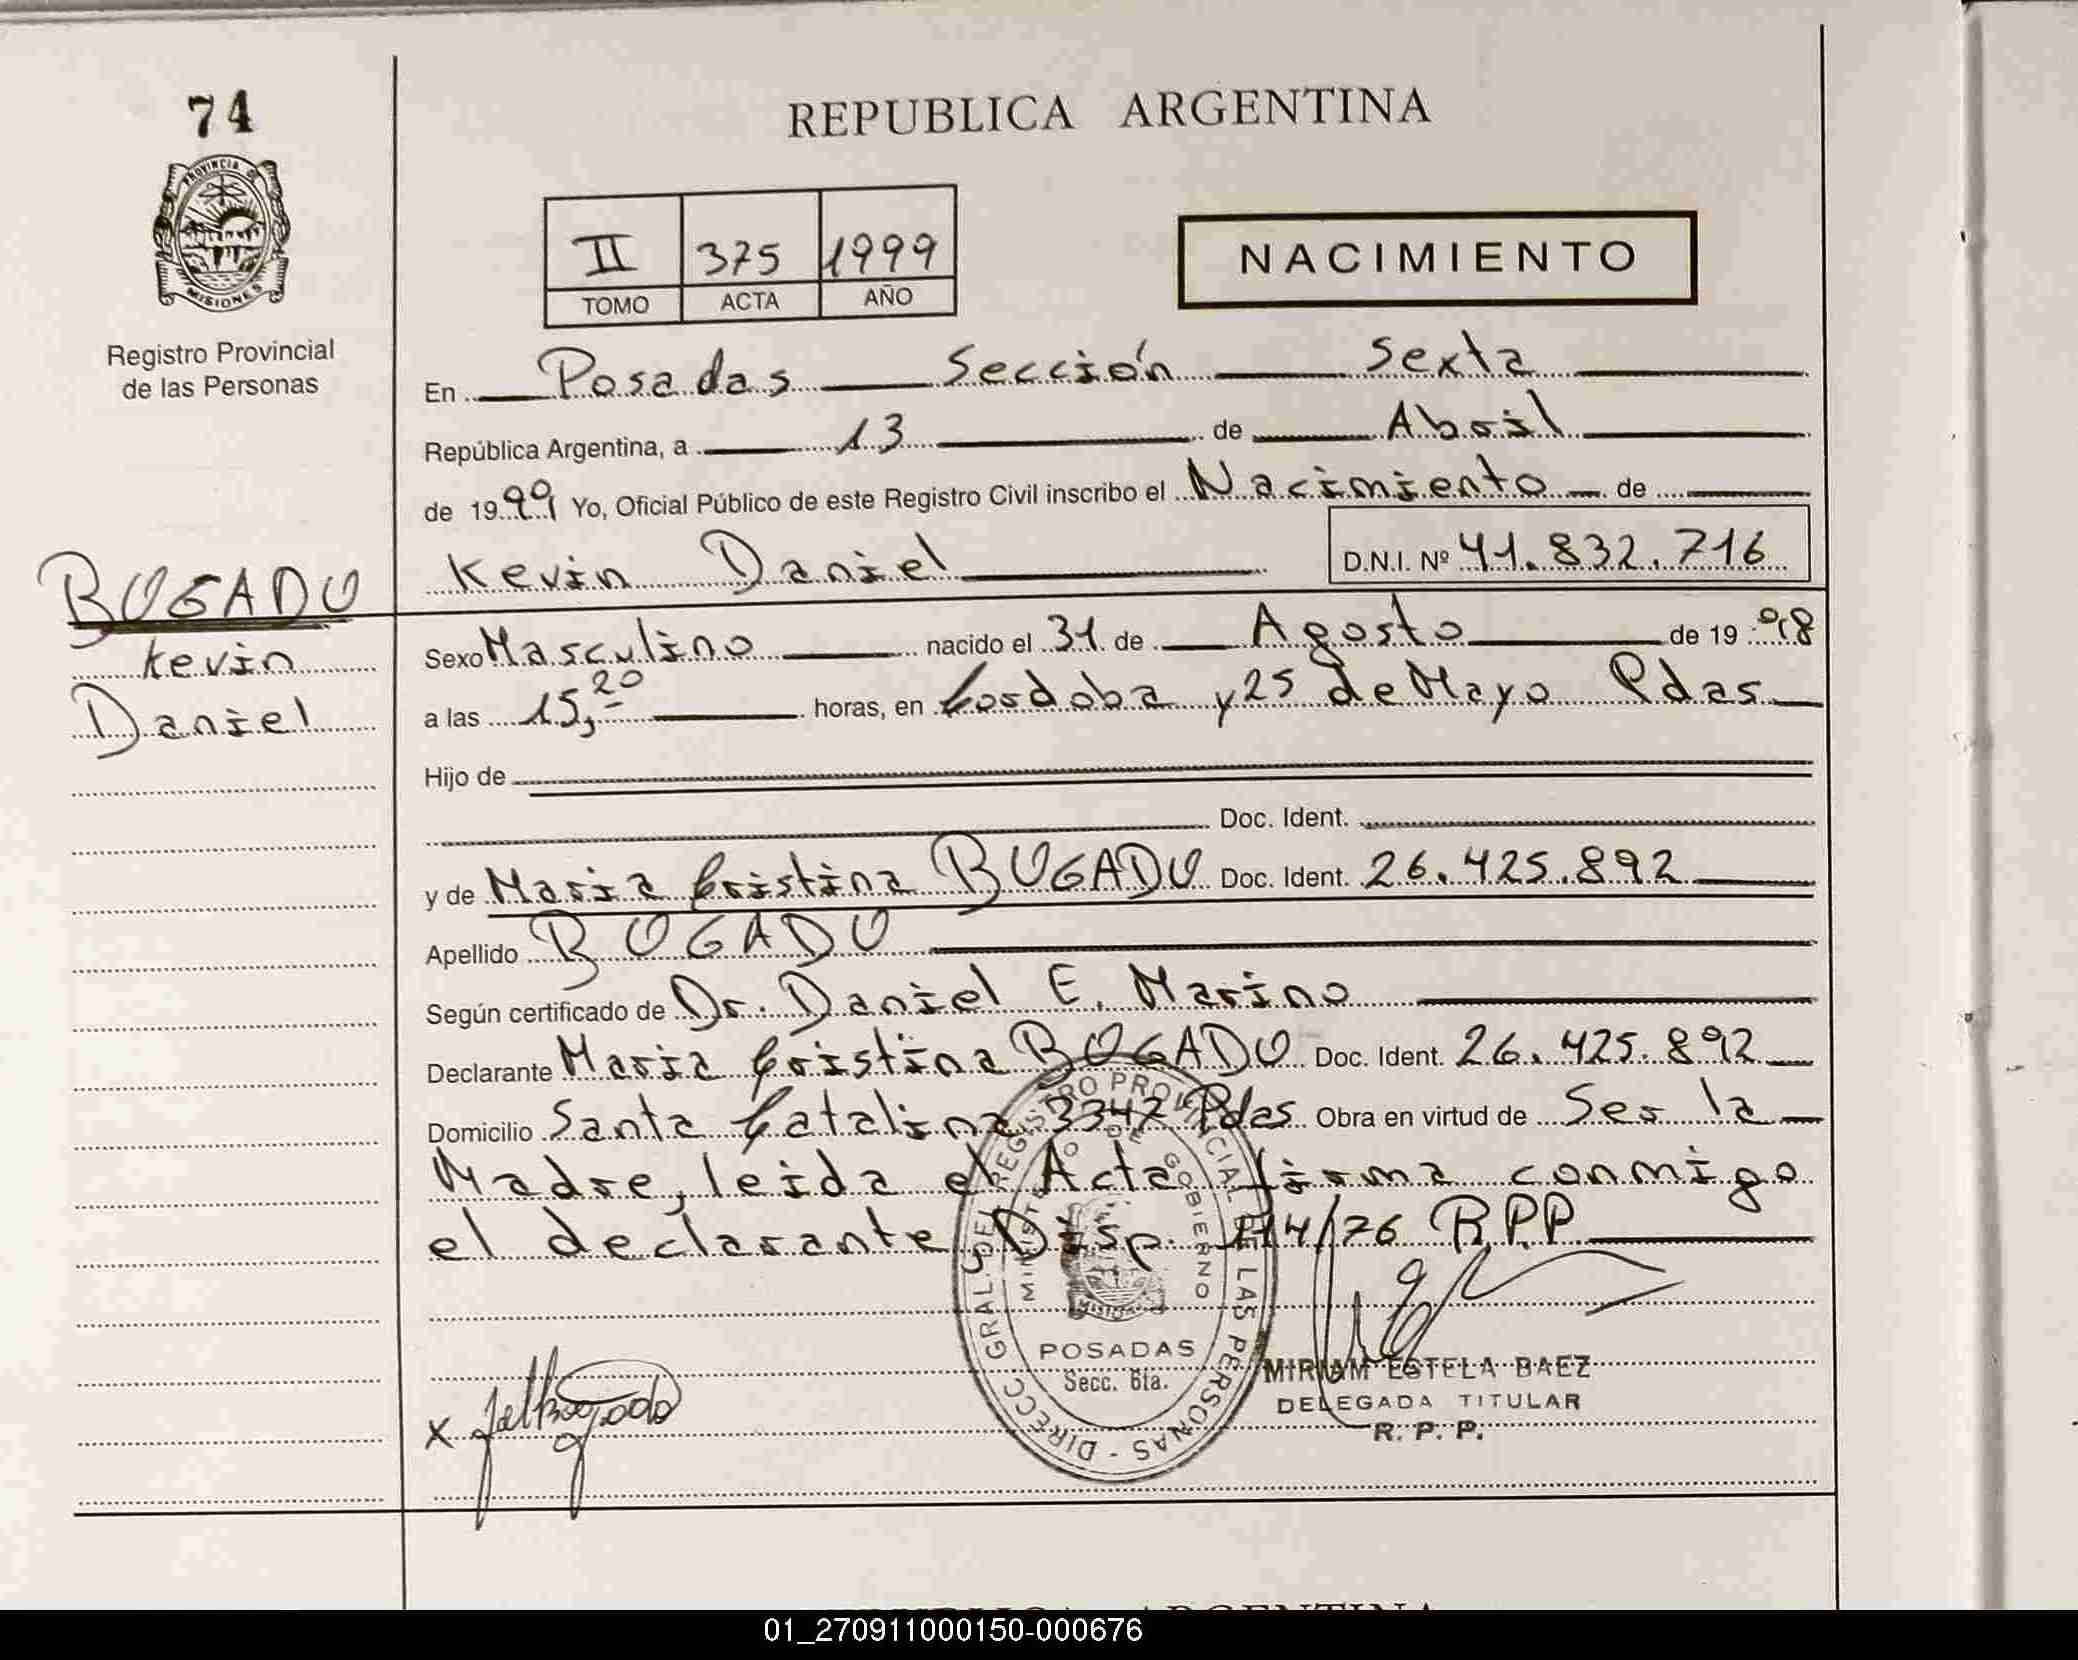 74
REPUBLICA ARGENTINA
PROVINCIA DE
MISIONES
Registro Provincial
de las Personas
II 375 1999
TOMO ACTA AÑO
NACIMIENTO
En Posadas Sección Sexta
República Argentina, a 13 de Abril
de 1999 Yo, Oficial Público de este Registro Civil inscribo el Nacimiento de
Kevin Daniel D.N.I. Nº 41.832.716
BOGADO
Kevin
Daniel
Sexo Masculino nacido el 31 de Agosto de 1998
a las 15,20 horas, en Cordoba y 25 de Mayo Pdas
Hijo de
Doc. Ident.
y de Maria Cristina BOGADO Doc. Ident. 26.425.892
Apellido BOGADO
Según certificado de Dr. Daniel E. Marino
Declarante Maria Cristina BOGADO Doc. Ident. 26.425.892
Domicilio Santa Catalina 3347 Pdas Obra en virtud de Ser la
Madre, leida el Acta firma conmigo
el declarante Disp. 114/76 R.P.P
DIRECC GRAL DEL REGISTRO PROVINCIAL DE LAS PERSONAS -
MINISTERIO DE GOBIERNO
MISIONES
POSADAS
Secc. 6ta.
MIRIAM ESTELA BAEZ
DELEGADA TITULAR
R. P. P.
X
01_270911000150-000676